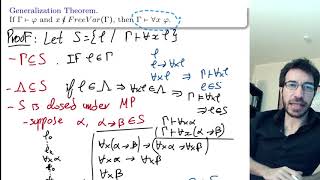 Generalization Theorem.
If Γ ⊢ φ and x ∉ FreeVar(Γ), then Γ ⊢ ∀x φ.
PROOF: Let S = {φ / Γ ⊢ ∀x φ}
- Γ ⊆ S. IF φ ∈ Γ
φ
φ → ∀x φ
∀x φ
⇒ Γ ⊢ ∀x φ
⇒ φ ∈ S
- Λ ⊆ S → if φ ∈ Λ ⇒ ∀x φ ∈ Λ ⇒ Γ ⊢ ∀x φ ⇒ φ ∈ S
- S is closed under MP
- suppose α, α → β ∈ S
Γ ⊢ ∀x α
Γ ⊢ ∀x (α → β)
∀x (α → β) → (∀x α → ∀x β)
∀x α
∀x α → ∀x β
∀x β